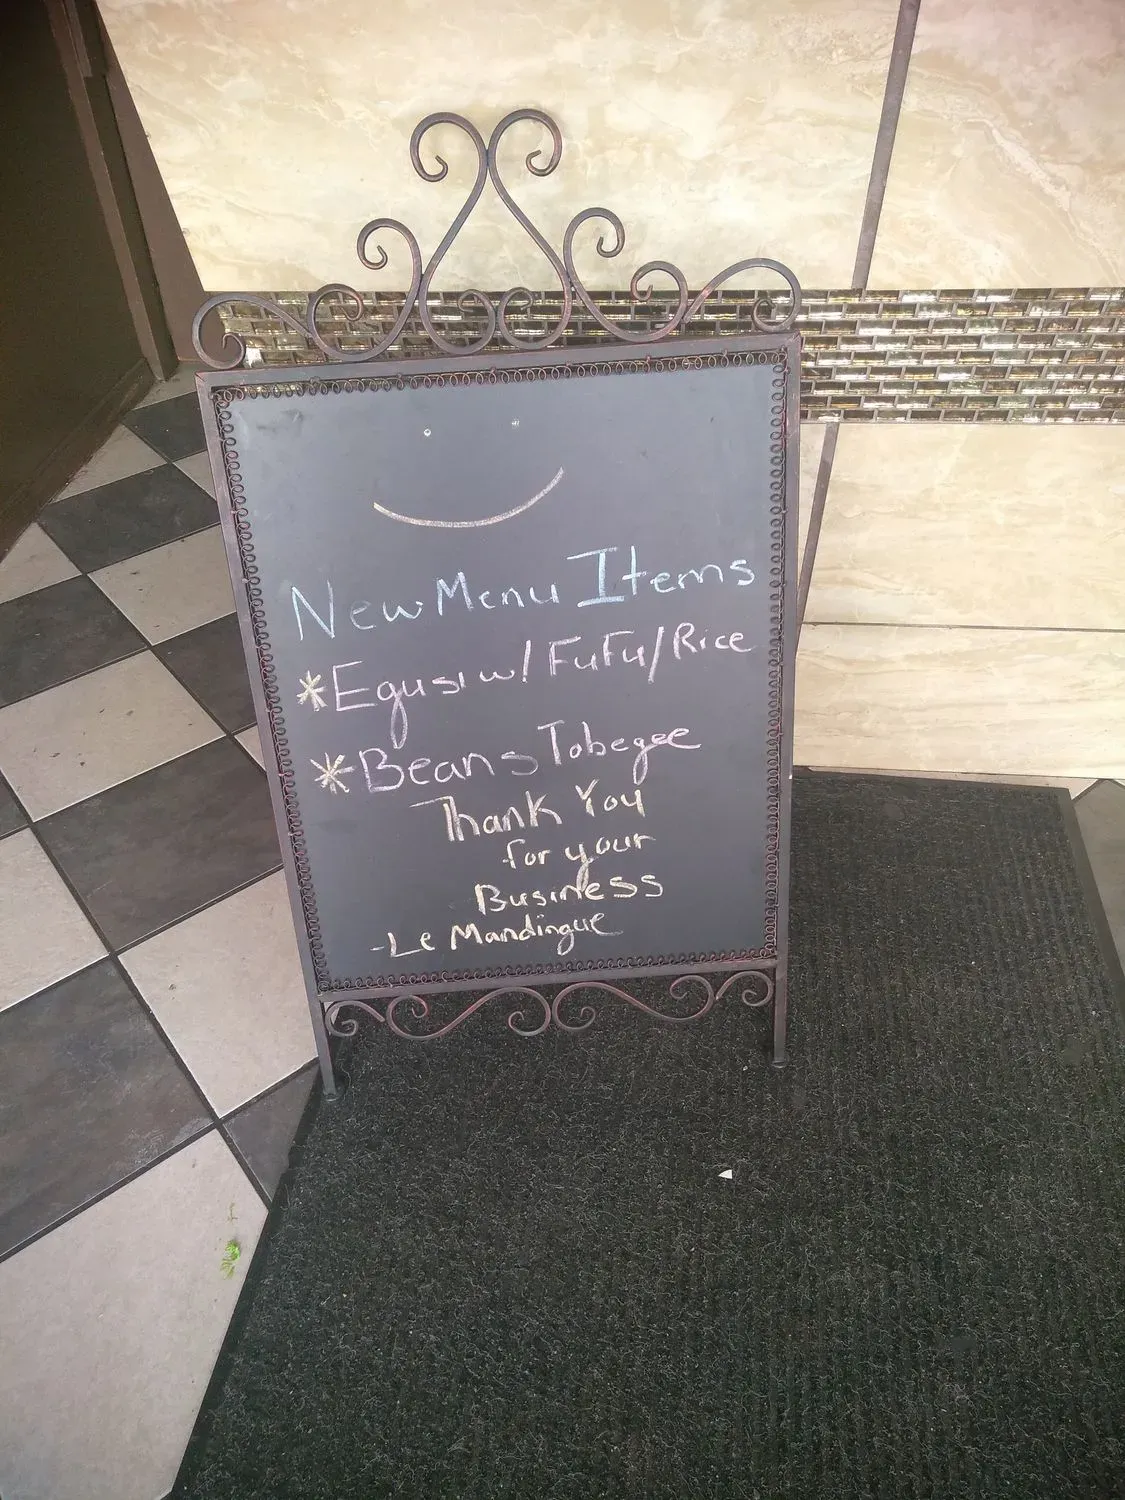 New Menu Items
*Egusi w/ FuFu/Rice
*Beans Tobegee
Thank You
for your
Business
-Le Mandingue